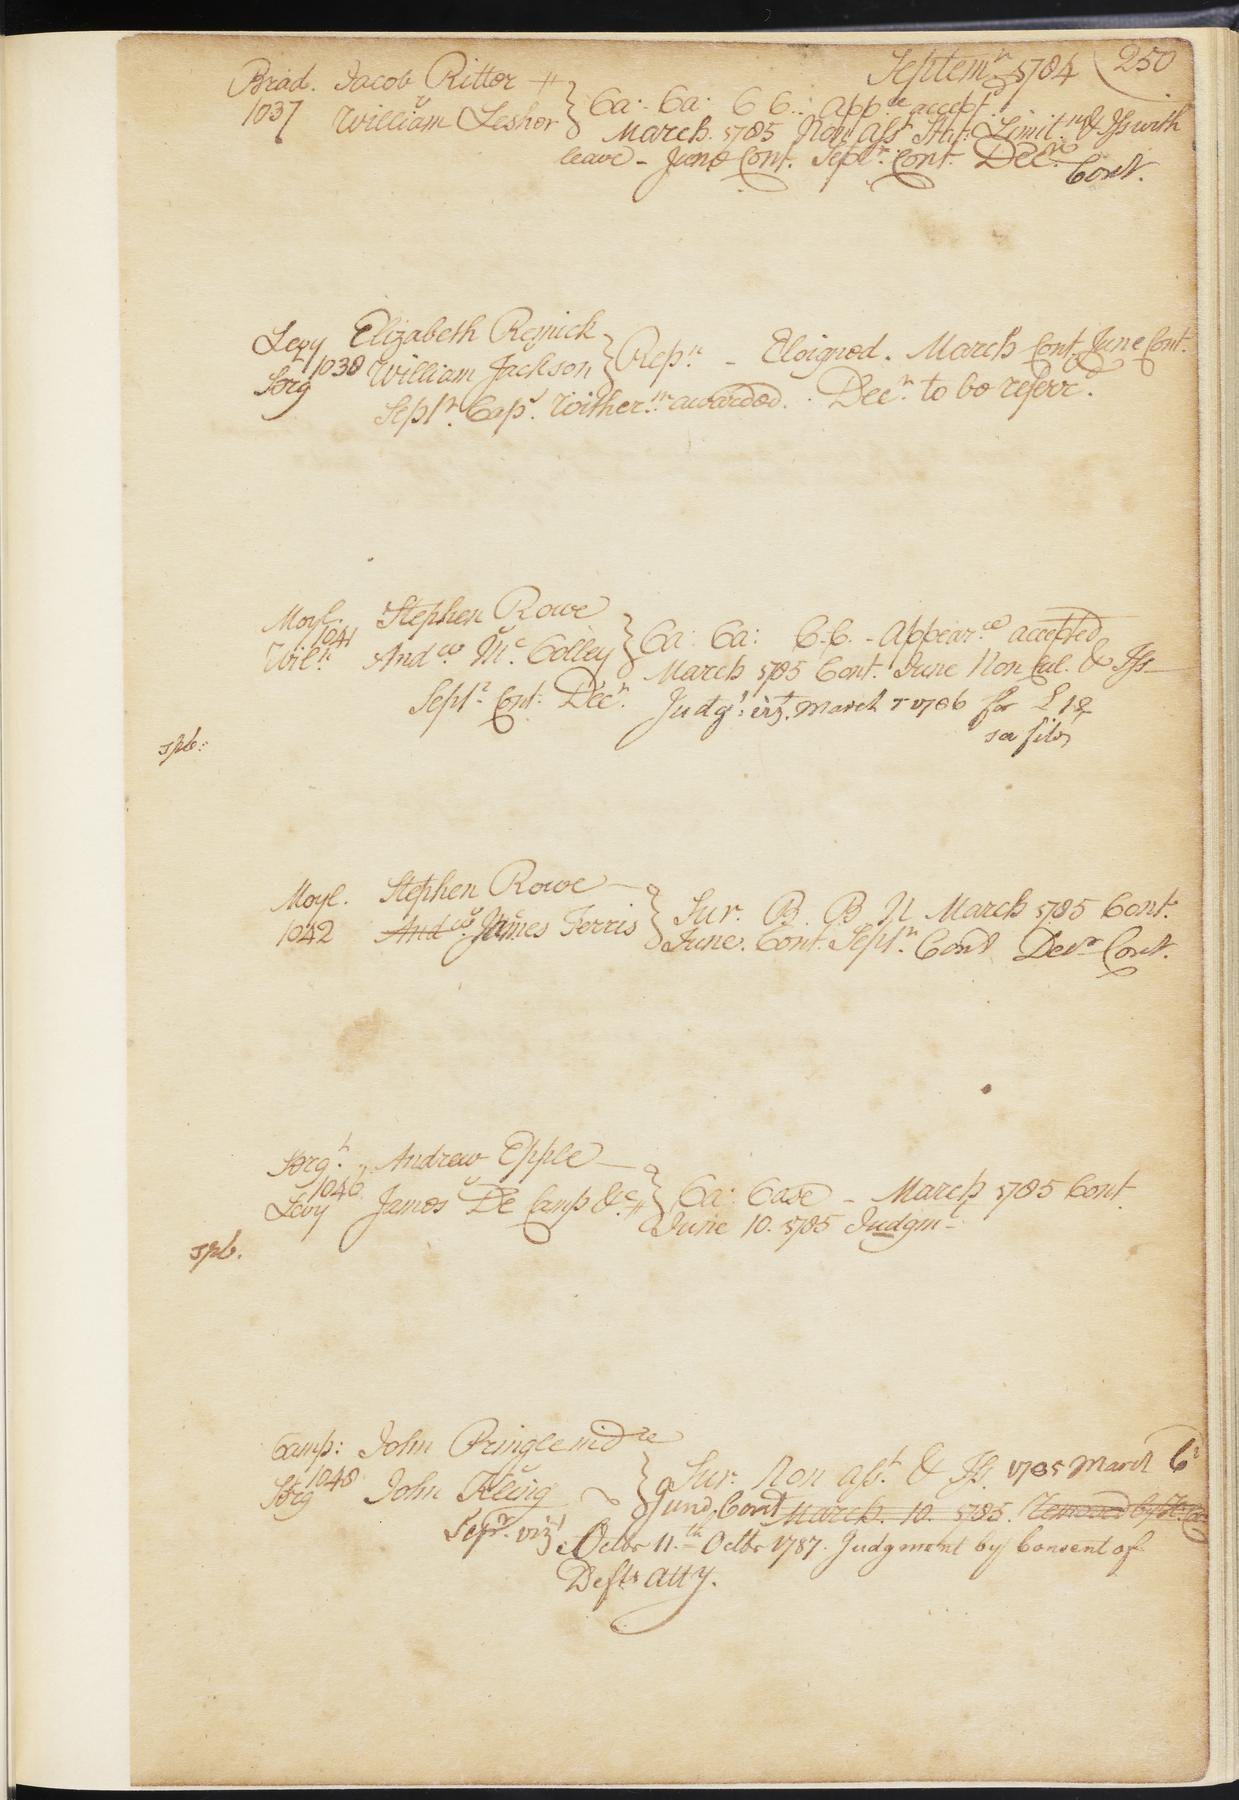 Septem.r 1784 (250
Brad. Jacob Ritter
1037 v William Lesher } Ca: Ca: C C: app.ce accept.d
March 1785 Non Ass.t Stat: Limit.ns & Iss with
leave - June Cont. Sept.r Cont. Dec.r Cont.
Levy Elizabeth Remick
1038 v
Serg.t William Jackson } Rep.n - Eloigned. March Cont June Cont.
Sept.r Cap.s Wither.m awarded. Dec.r to be referr.d
Moyl. Stephen Rowe
1041 v
Wil.n And.w Mc. Colley } Ca: Ca: C.C. - appear.ce accepted
March 1785 Cont. June Non Cul. & Iss
Sept.r Cont: Dec.r Judg.t viz. March T 1786 for £ 18
spb:
Moyl. Stephen Rowe
1042 And.w v James Ferris } Sur. B. B N March 1785 Cont.
June. Cont. Sept.r Cont Decr Cont.
Serg.t Andrew Epple
1046 v
Levy James De Camp &c } Ca: Case - March 1785 Cont
June 10. 1785 Judgm
spb.
Camp: John Pringle
1048 v
Serg John Kleing } Sur. Non ass.t & Iss. 1785 March C
Cont March. 10. 1785. Removed by
Sepr. viz Octbr 11.th Octbr 1787. Judgment by Consent of
Defts atty.